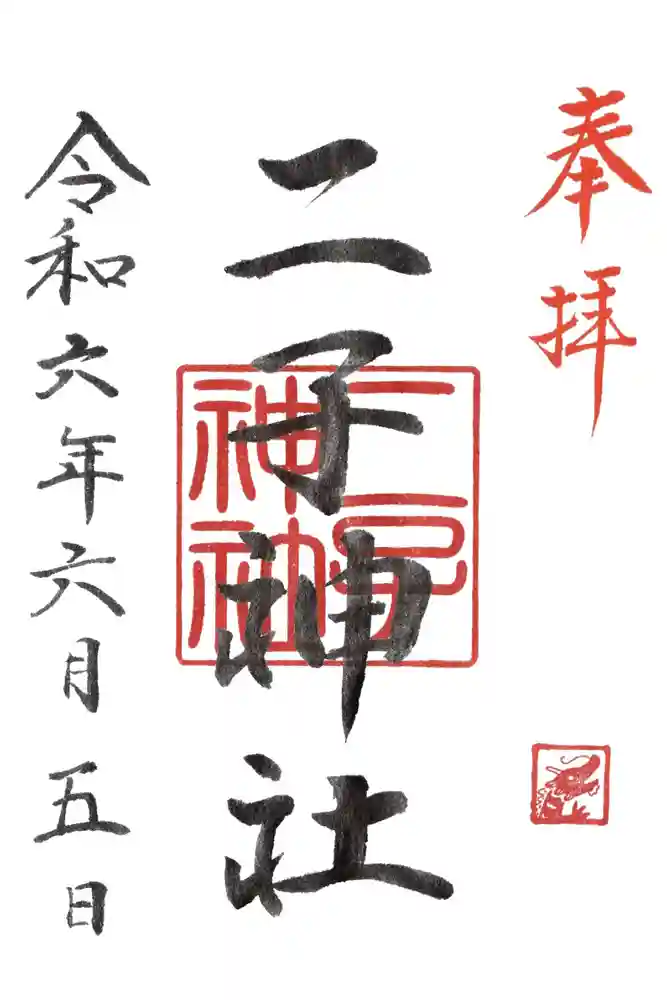 奉拝
二子神社
二子神社
令和六年六月五日